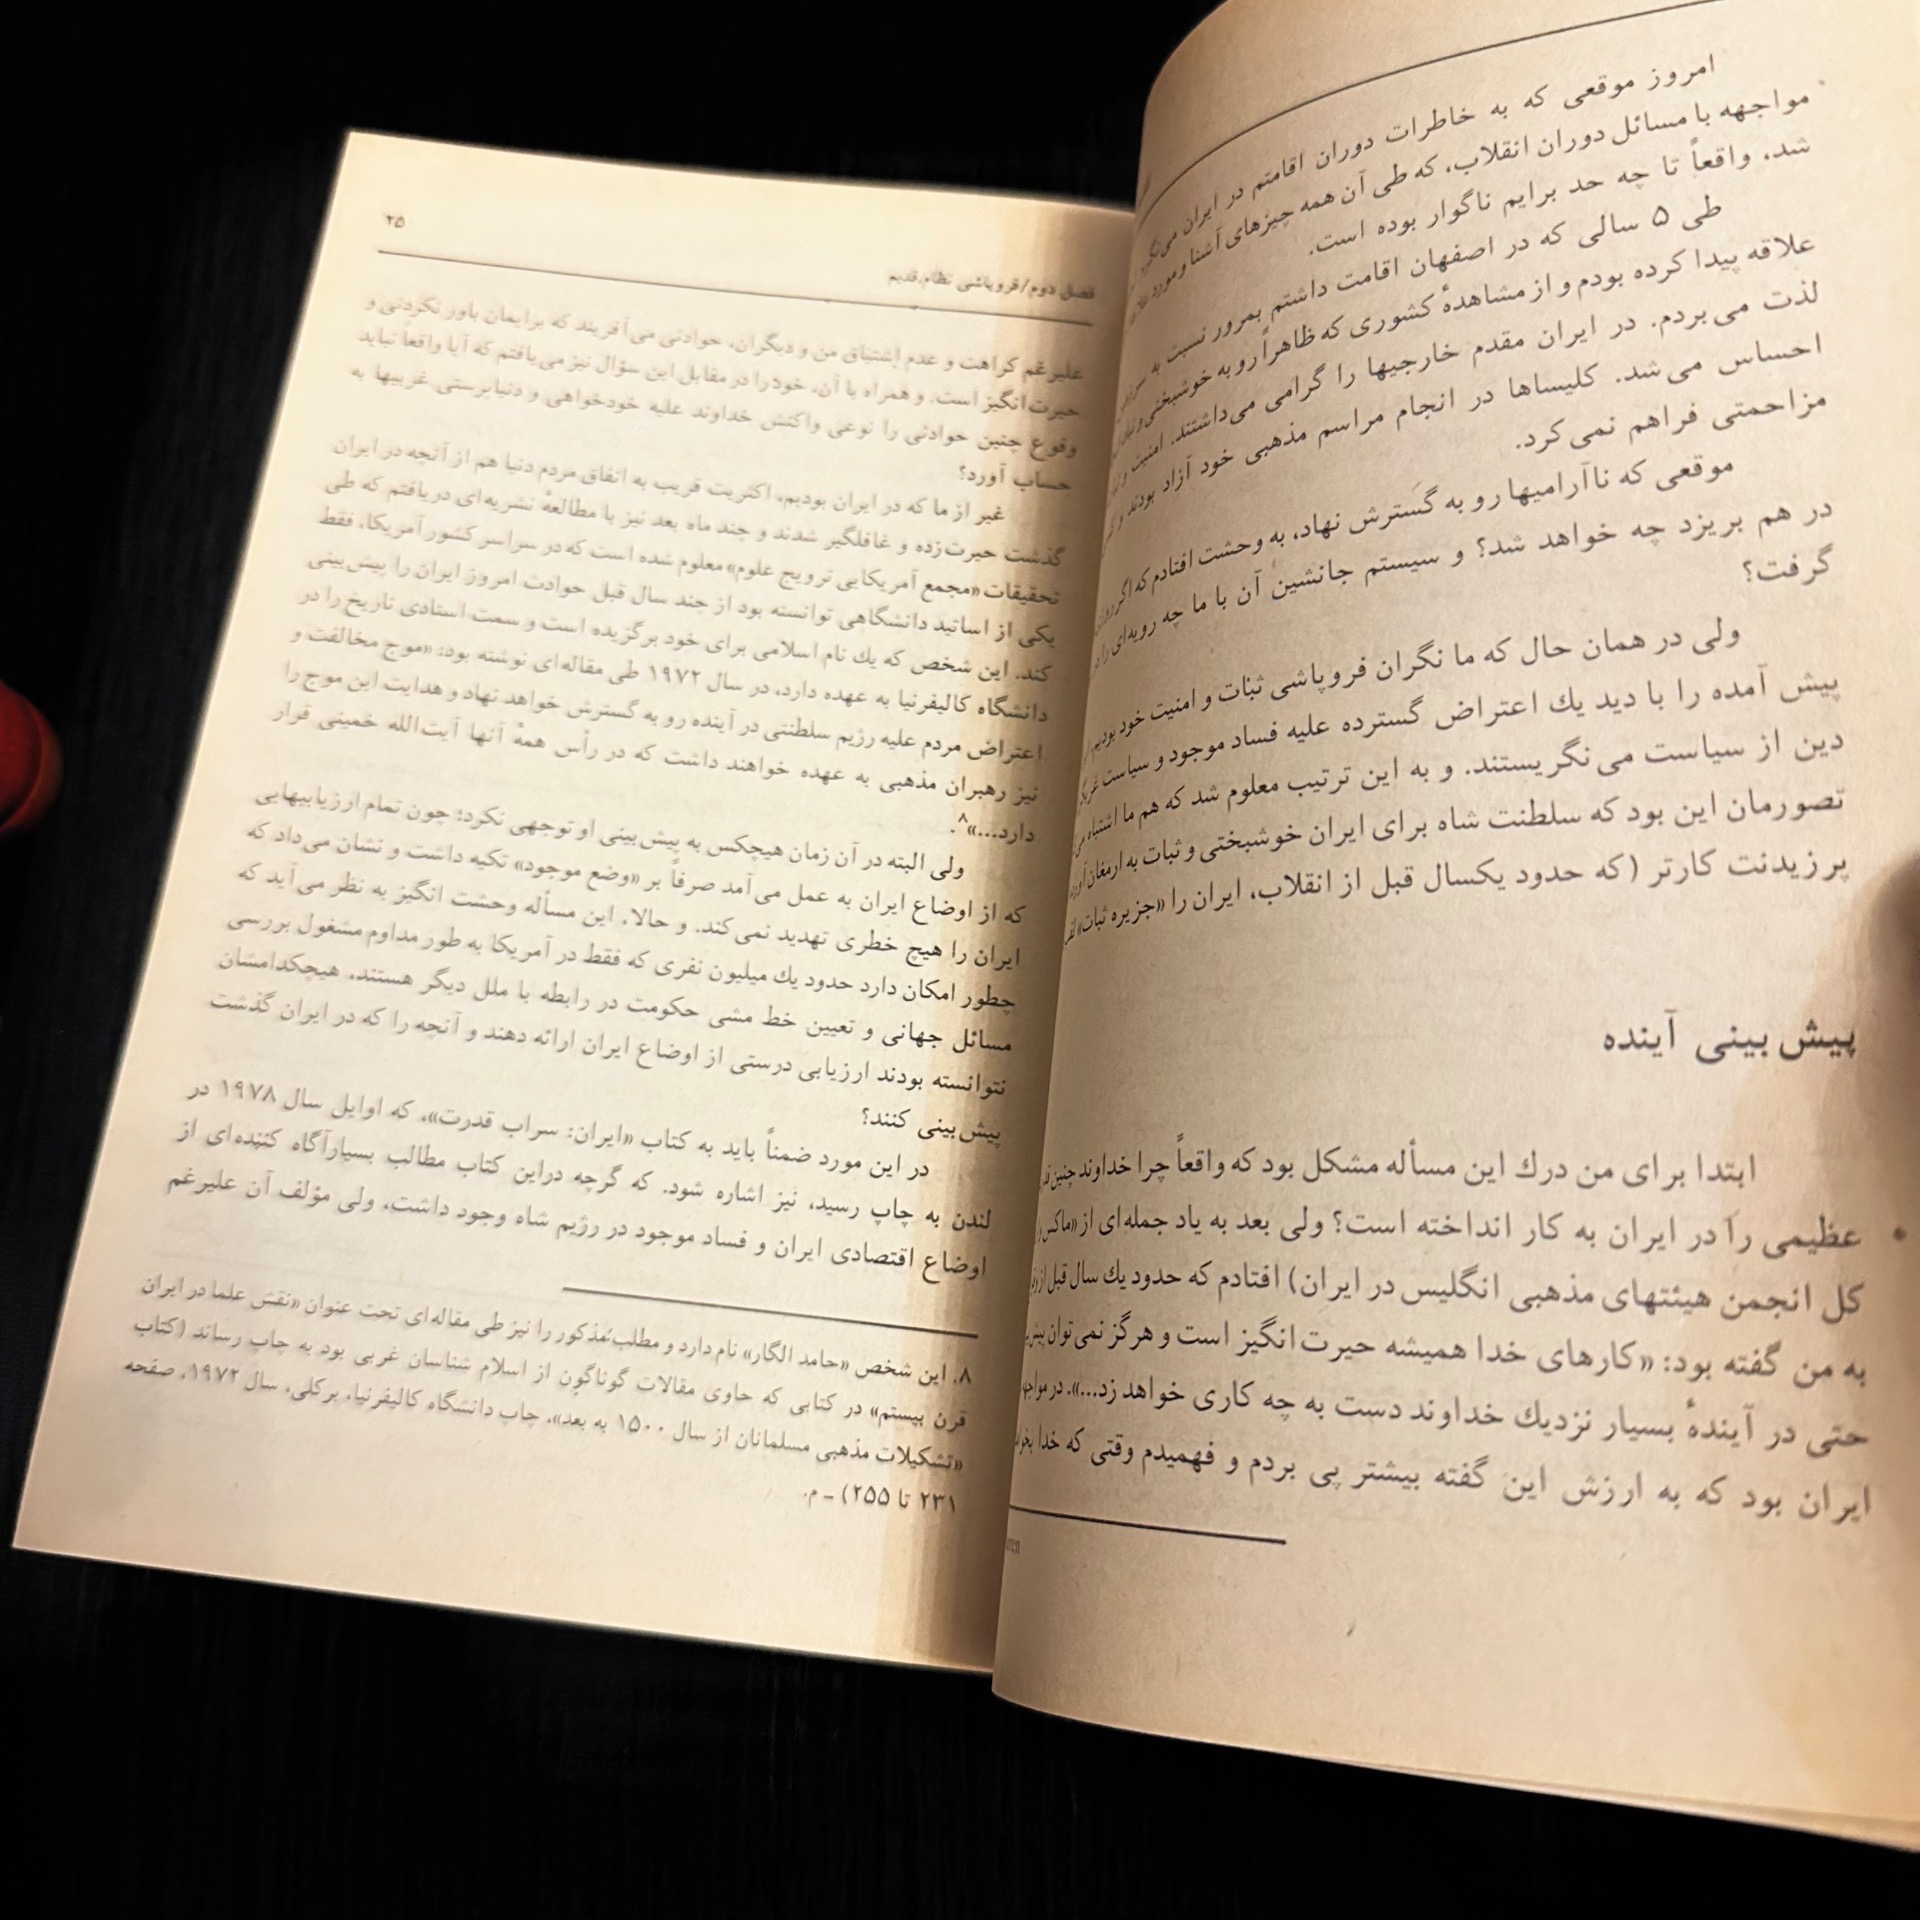 امروز موقعی که به خاطرات دوران اقامتم در ایران می‌نگرم
مواجهه با مسائل دوران انقلاب، که طی آن همه چیزهای آشنا و مورد
شد، واقعاً تا چه حد برایم ناگوار بوده است.
طی ۵ سالی که در اصفهان اقامت داشتم بمرور نسبت به
علاقه پیدا کرده بودم و از مشاهدهٔ کشوری که ظاهراً رو به خوشبختی و
لذت می‌بردم. در ایران مقدم خارجیها را گرامی می‌داشتند. امنیت و
احساس می‌شد. کلیساها در انجام مراسم مذهبی خود آزاد بودند و
مزاحمتی فراهم نمی‌کرد.
موقعی که ناآرامیها رو به گسترش نهاد، به وحشت افتادم که اگر
در هم بریزد چه خواهد شد؟ و سیستم جانشین آن با ما چه رویه‌ای را
گرفت؟
ولی در همان حال که ما نگران فروپاشی ثبات و امنیت خود بودیم،
پیش آمده را با دید یك اعتراض گسترده علیه فساد موجود و سیاست
دین از سیاست می‌نگریستند. و به این ترتیب معلوم شد که هم ما اشتباه
تصورمان این بود که سلطنت شاه برای ایران خوشبختی و ثبات به ارمغان
پرزیدنت کارتر (که حدود یکسال قبل از انقلاب، ایران را «جزیره ثبات»
پیش‌بینی آینده
ابتدا برای من درك این مسأله مشکل بود که واقعاً چرا خداوند چنین
عظیمی را در ایران به کار انداخته است؟ ولی بعد به یاد جمله‌ای از «ماکس
کل انجمن هیئتهای مذهبی انگلیس در ایران) افتادم که حدود یك سال قبل از
به من گفته بود: «کارهای خدا همیشه حیرت‌انگیز است و هرگز نمی‌توان
حتی در آیندهٔ بسیار نزدیك خداوند دست به چه کاری خواهد زد...». در
ایران بود که به ارزش این گفته بیشتر پی بردم و فهمیدم وقتی که خدا
۲۵
فصل دوم/فروپاشی نظام قدیم
علیرغم کراهت و عدم اشتیاق من و دیگران، حوادثی می‌آفریند که برایمان باور نکردنی و
حیرت‌انگیز است. و همراه با آن، خود را در مقابل این سؤال نیز می‌یافتم که آیا واقعاً نباید
وقوع چنین حوادثی را نوعی واکنش خداوند علیه خودخواهی و دنیاپرستی غربیها به
حساب آورد؟
غیر از ما که در ایران بودیم، اکثریت قریب به اتفاق مردم دنیا هم از آنچه در ایران
گذشت حیرت‌زده و غافلگیر شدند و چند ماه بعد نیز با مطالعهٔ نشریه‌ای دریافتم که طی
تحقیقات «مجمع آمریکایی ترویج علوم» معلوم شده است که در سراسر کشور آمریکا، فقط
یکی از اساتید دانشگاهی توانسته بود از چند سال قبل حوادث امروز ایران را پیش‌بینی
کند. این شخص که یك نام اسلامی برای خود برگزیده است و سمت استادی تاریخ را در
دانشگاه کالیفرنیا به عهده دارد، در سال ۱۹۷۲ طی مقاله‌ای نوشته بود: «موج مخالفت و
اعتراض مردم علیه رژیم سلطنتی در آینده رو به گسترش خواهد نهاد و هدایت این موج را
نیز رهبران مذهبی به عهده خواهند داشت که در رأس همهٔ آنها آیت‌الله خمینی قرار
دارد...»۸.
ولی البته در آن زمان هیچکس به پیش‌بینی او توجهی نکرد؛ چون تمام ارزیابیهایی
که از اوضاع ایران به عمل می‌آمد صرفاً بر «وضع موجود» تکیه داشت و نشان می‌داد که
ایران را هیچ خطری تهدید نمی‌کند. و حالا، این مسأله وحشت انگیز به نظر می‌آید که
چطور امکان دارد حدود یك میلیون نفری که فقط در آمریکا به طور مداوم مشغول بررسی
مسائل جهانی و تعیین خط مشی حکومت در رابطه با ملل دیگر هستند، هیچکدامشان
نتوانسته بودند ارزیابی درستی از اوضاع ایران ارائه دهند و آنچه را که در ایران گذشت
پیش‌بینی کنند؟
در این مورد ضمناً باید به کتاب «ایران: سراب قدرت»، که اوایل سال ۱۹۷۸ در
لندن به چاپ رسید، نیز اشاره شود. که گرچه دراین کتاب مطالب بسیارآگاه کننده‌ای از
اوضاع اقتصادی ایران و فساد موجود در رژیم شاه وجود داشت، ولی مؤلف آن علیرغم
۸. این شخص «حامد الگار» نام دارد و مطلب مذکور را نیز طی مقاله‌ای تحت عنوان «نقش علما در ایران
قرن بیستم» در کتابی که حاوی مقالات گوناگون از اسلام شناسان غربی بود به چاپ رساند (کتاب
«تشکیلات مذهبی مسلمانان از سال ۱۵۰۰ به بعد»، چاپ دانشگاه کالیفرنیا، برکلی، سال ۱۹۷۲، صفحه
۲۳۱ تا ۲۵۵) – م.